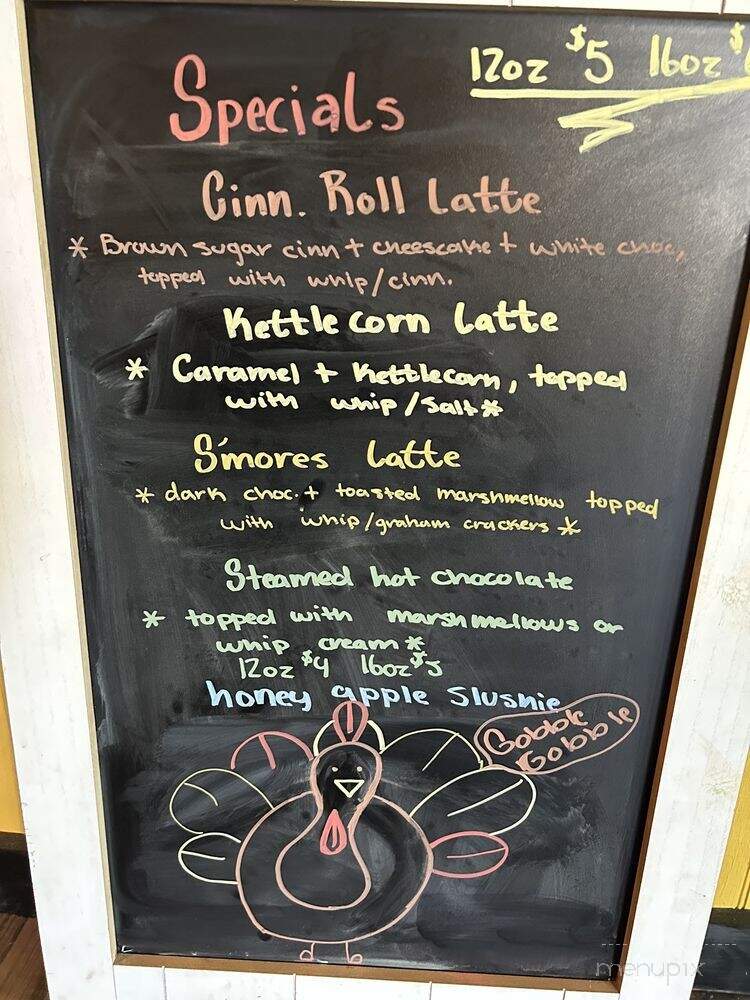 12oz $5 16oz $
Specials
Cinn. Roll Latte
* Brown sugar cinn + cheesecake + white choc,
topped with whip/cinn.
Kettle corn Latte
* Caramel + Kettlecorn, topped
with whip/salt *
S'mores Latte
* dark choc. + toasted marshmellow topped
with whip/graham crackers *
Steamed hot chocolate
* topped with marshmellows or
whip cream *
12oz $4 16oz $5
honey apple Slushie
Gobble
Gobble
menupix